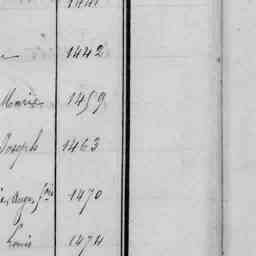 1442
Marie 1459
Joseph 1463
1470
Louis 1474